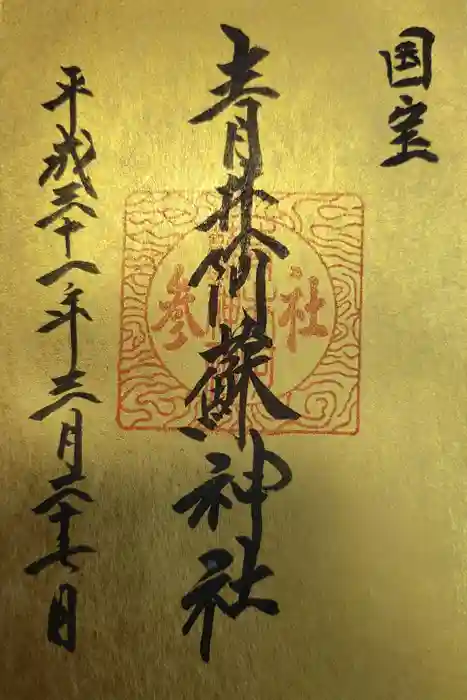 国宝
青井阿蘇神社
参 社
平成三十一年三月二十七日